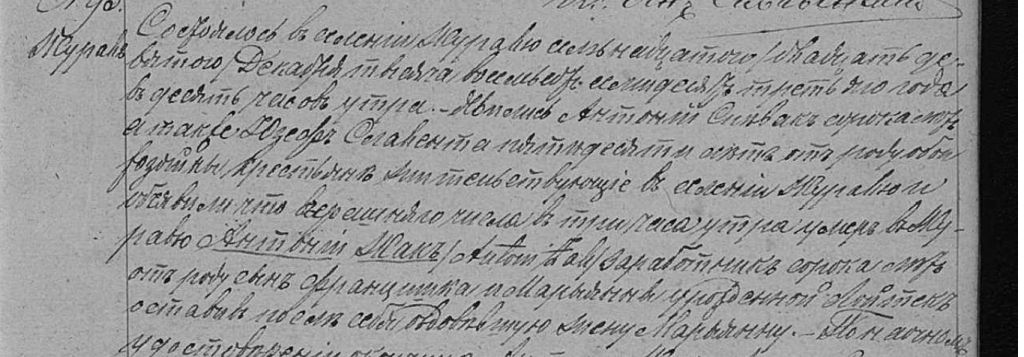 Журавъ
Состоялось въ селеніи Журавю семьнадцатого /двадцать де-
вятого/ Декабря тысяча восемьсотъ семидесятъ третьяго года
въ десять часовъ утра. – Явились Антоній Спивакъ сорока лѣтъ
а также Юзефъ лѣтъ отъ роду оба
крестьяне жительствующіе въ селеніи Журавю и
объявили что вчерашняго числа въ три часа утра умеръ въ Жу-
равю Антоній Жакъ /Antoni Żak/ заработникъ сорока лѣтъ
отъ роду сынъ Францишка и Марьянны урожденной
оставивъ послѣ себя овдовѣвшую жену Марьянну. – По наочномъ
удостовѣреніи